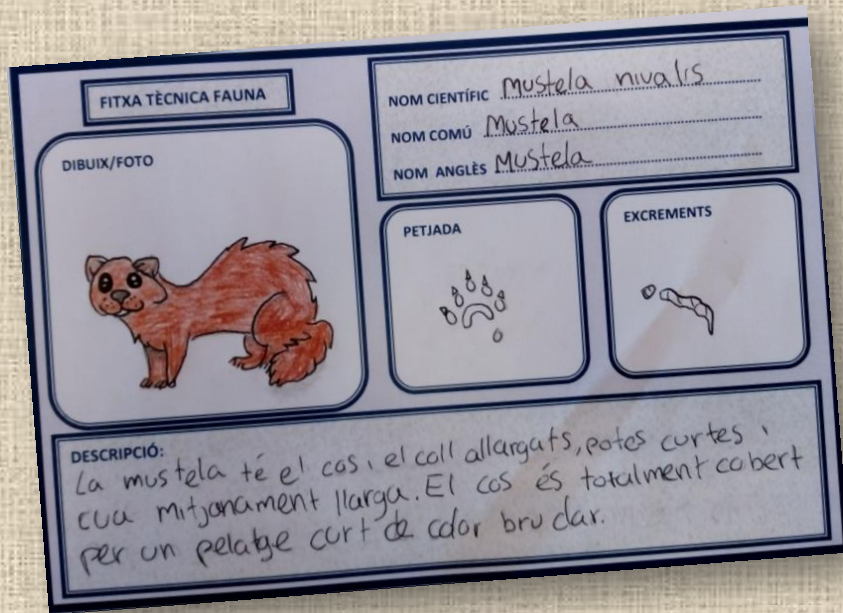 FITXA TÈCNICA FAUNA
NOM CIENTÍFIC Mustela nivalis
NOM COMÚ Mustela
NOM ANGLÈS Mustela
DIBUIX/FOTO
PETJADA
EXCREMENTS
DESCRIPCIÓ:
La mustela té el cos i el coll allargats, potes curtes i
cua mitjanament llarga. El cos és totalment cobert
per un pelatge curt de color bru clar.